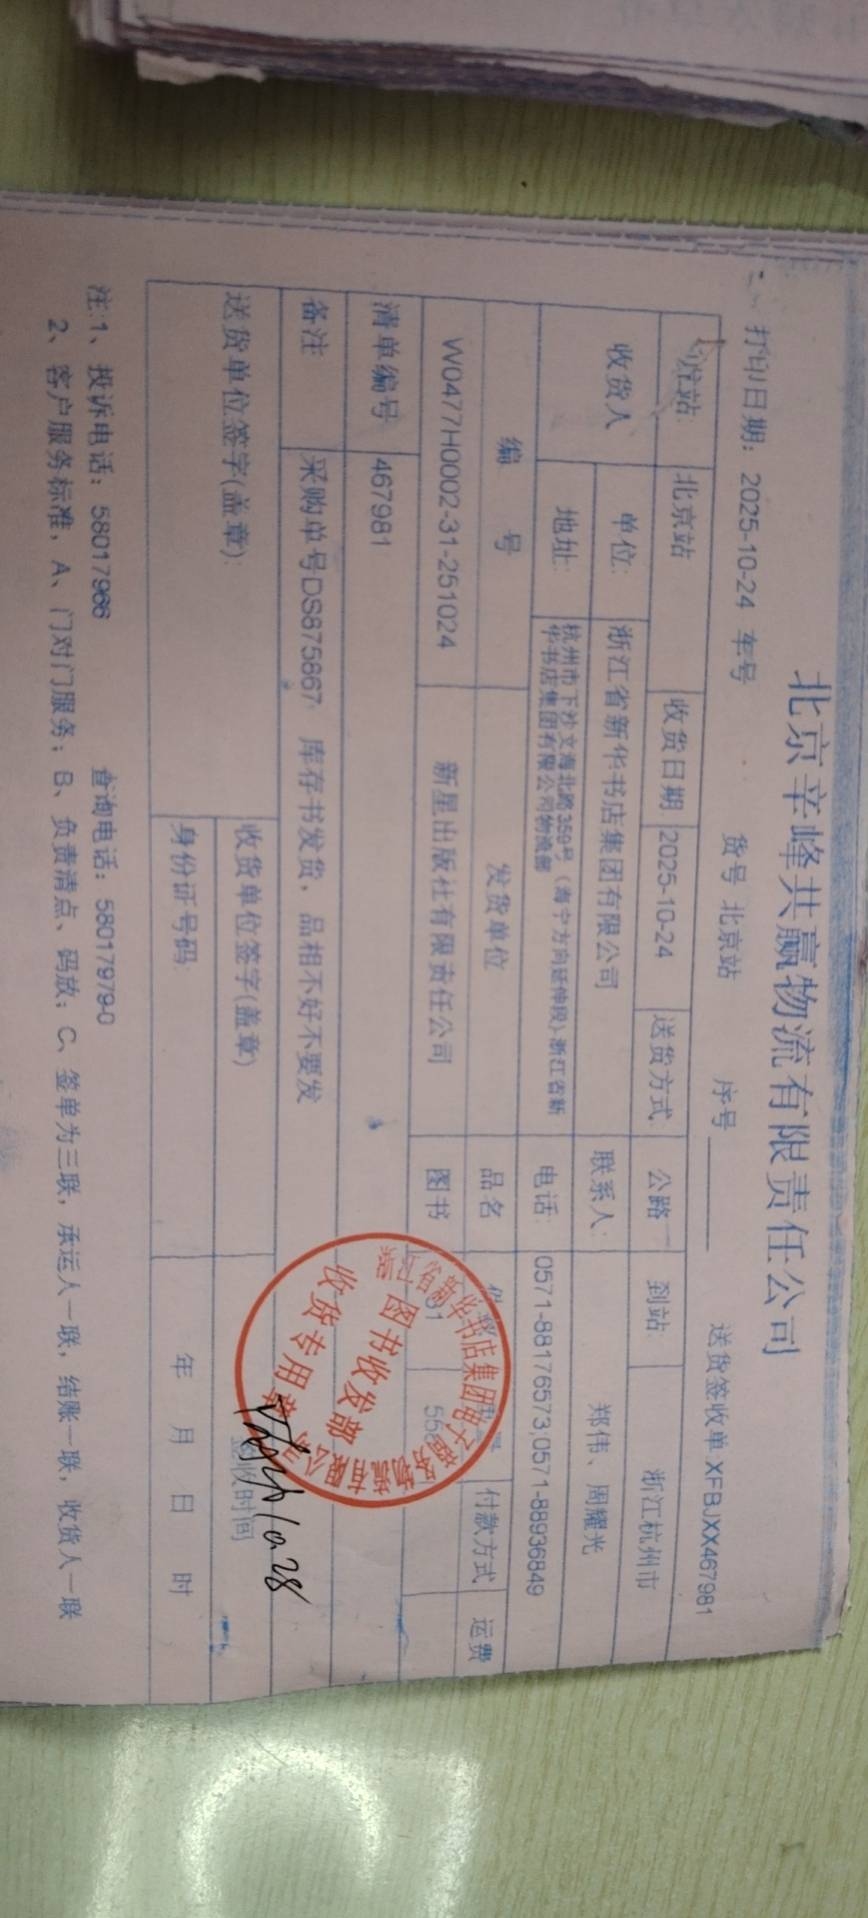 北京辛峰共赢物流有限责任公司
打印日期：2025-10-24 车号 货号 北京站 序号 送货签收单 XFBJXX467981
站: 北京站 收货日期 2025-10-24 送货方式 公路 到站: 浙江杭州市
收货人 单位: 浙江省新华书店集团有限公司 联系人: 郑伟、周耀光
地址: 杭州市下沙文海北路359号（海宁方向延伸段)浙江省新
华书店集团有限公司物流部 电话: 0571-88176573;0571-88936849
编 号 发货单位 品名 件 付款方式 运费
W0477H0002-31-251024 新星出版社有限责任公司 图书 31
清单编号 467981
备注 采购单号DS875867 库存书发货，品相不好不要发
送货单位签字(盖章): 收货单位签字(盖章) 签收时间
身份证号码: 年 月 日 时
浙江省新华书店集团电子商务
有限公司
图书收发部
收货专用章
10.28
注:1、投诉电话：58017966 查询电话：58017979-0
2、客户服务标准，A、门对门服务；B、负责清点、码放；C、签单为三联，承运人一联，结账一联，收货人一联